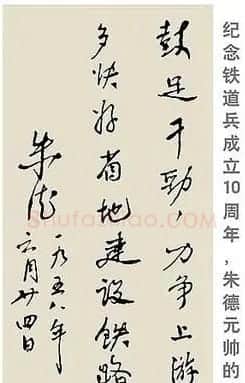 鼓足干劲，力争上游
多快好省地建设铁路
朱德
一九五八年
六月廿四日
纪念铁道兵成立10周年，朱德元帅的
Shufaswao.com